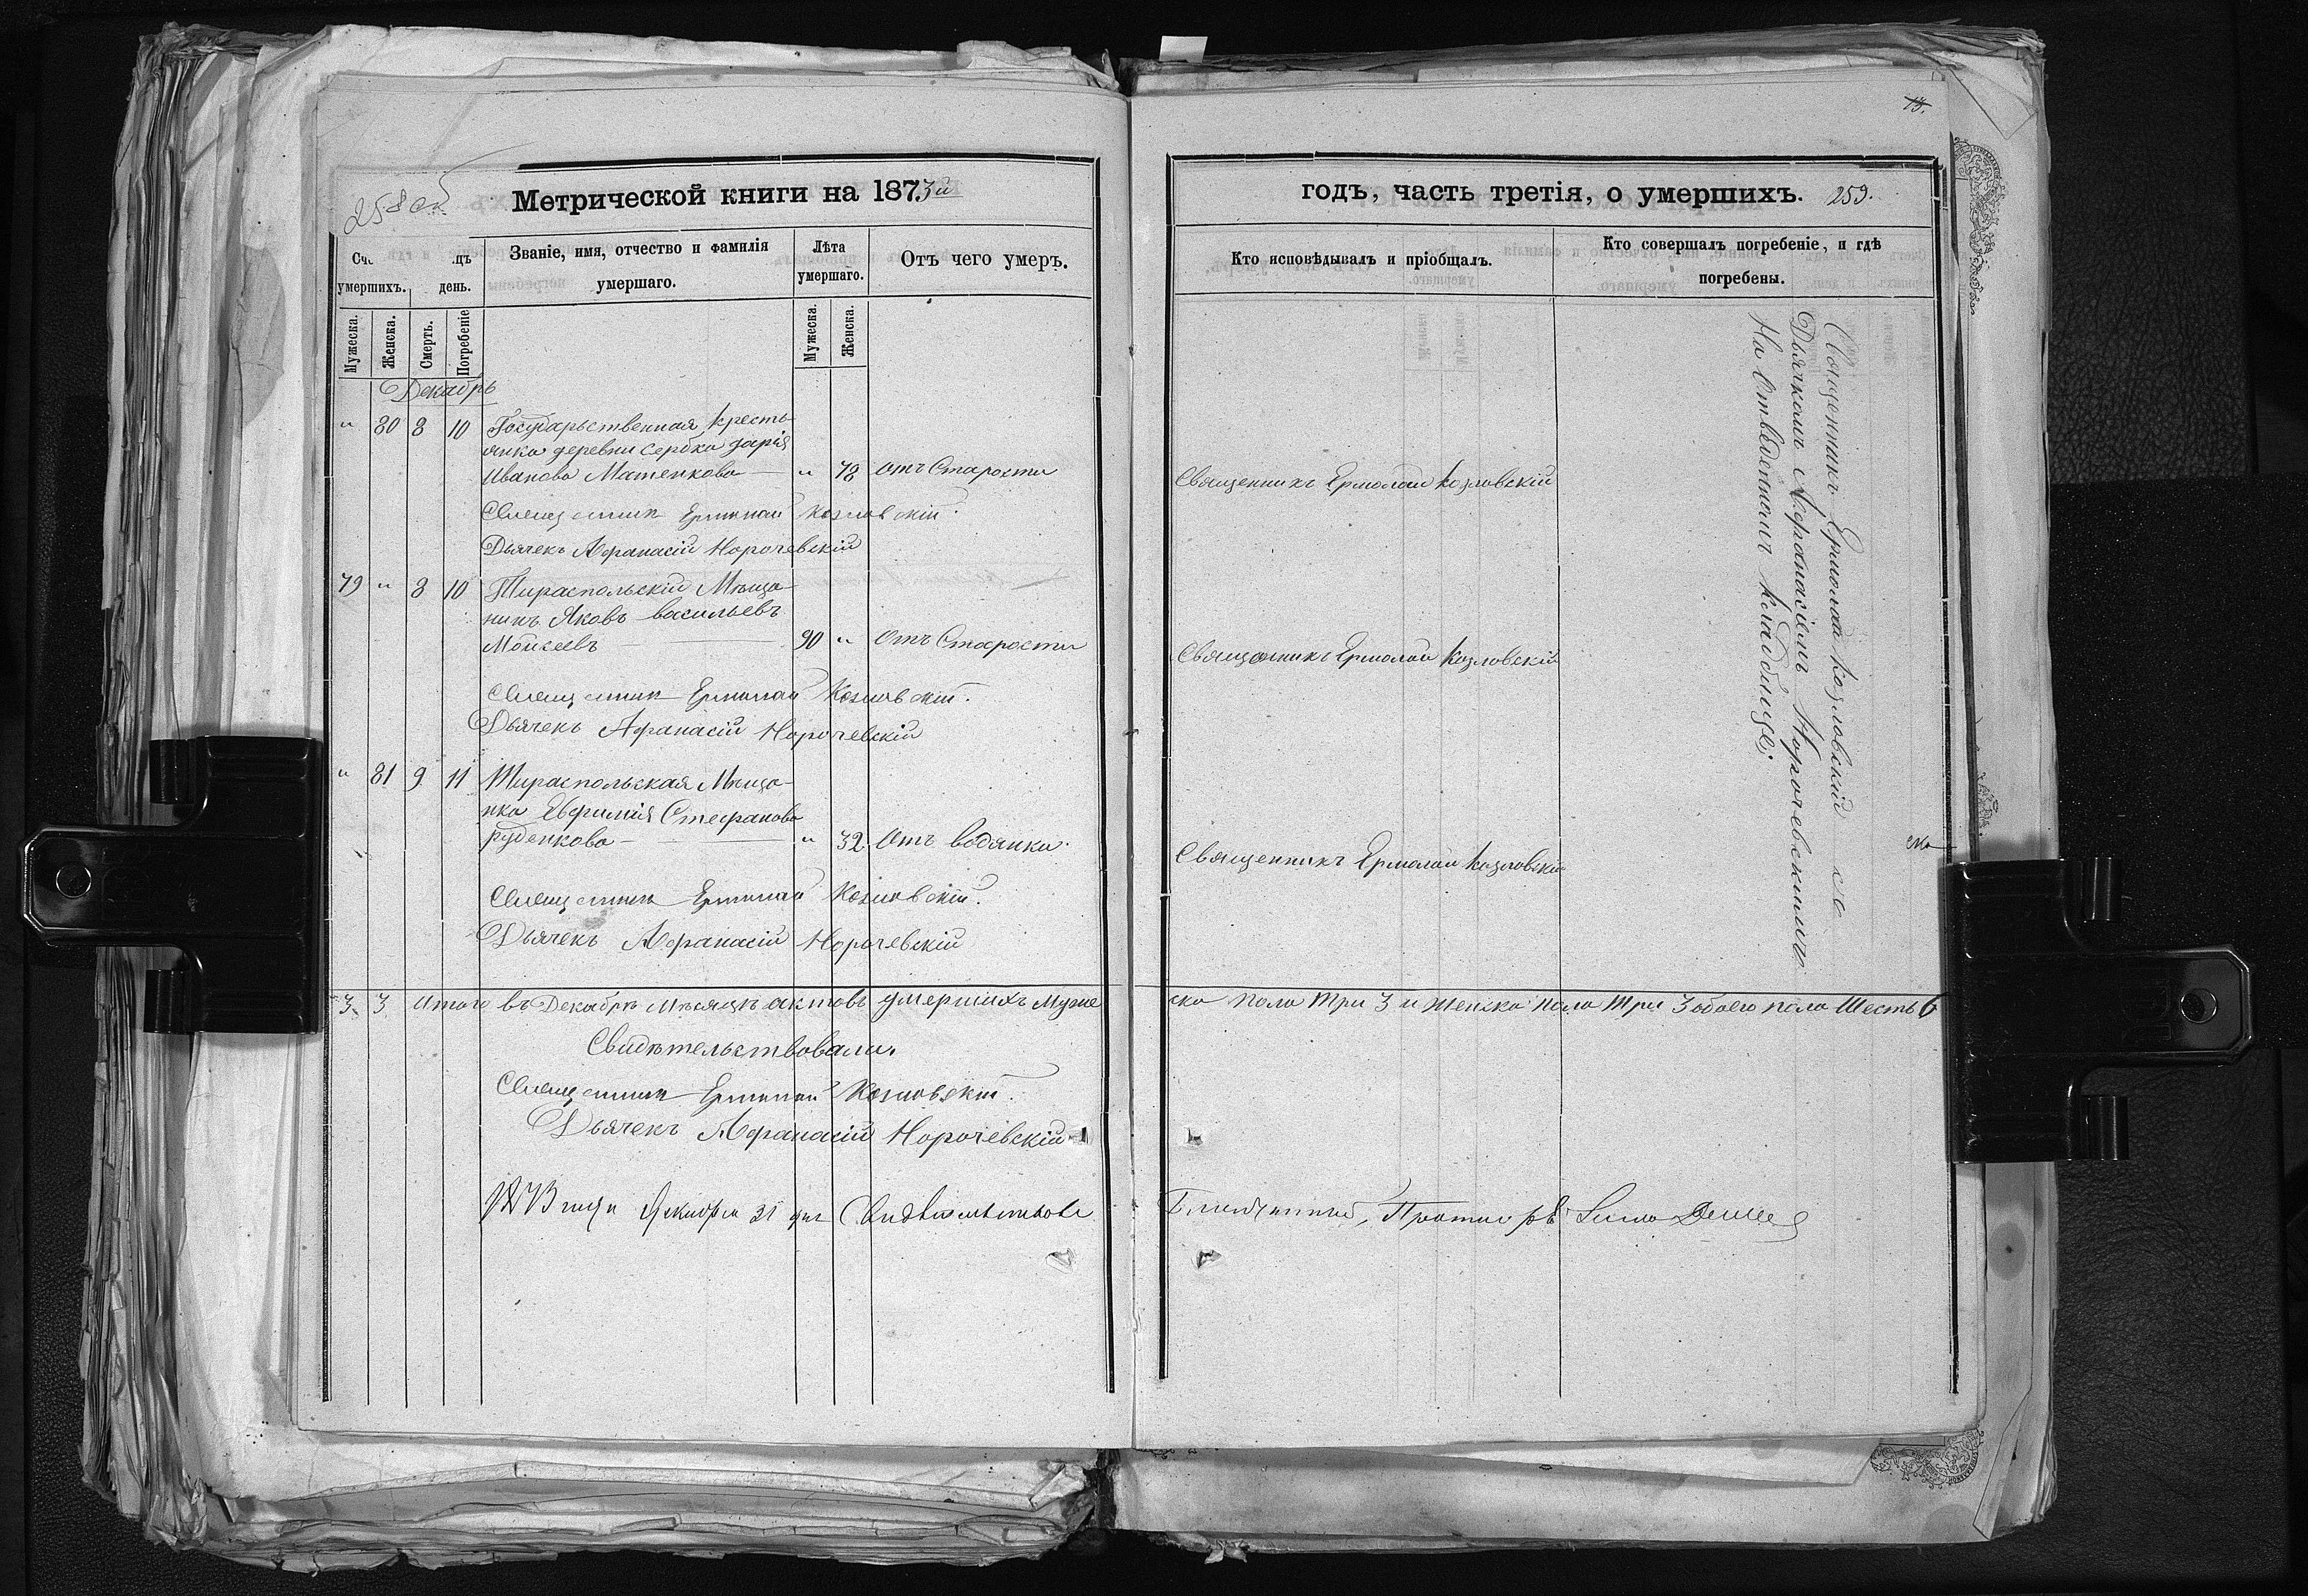 258 об
Метрической книги на 1873й
Сче
умершихъ.
цъ
день.
Званіе, имя, отчество и фамилія
умершаго.
Лѣта
умершаго.
Отъ чего умеръ.
Мужеска.
Женска.
Смерть.
Погребеніе
Мужеска.
Женска.
Декабрь
„ 80 8 10 Государьственная Кресть-
янка деревни Сербка Дарія
Иванова Матенкова — „ 78 Отъ Старости
Священникъ Ермолай Козловскій.
Дьячекъ Афанасій Норочевскій
79 „ 8 10 Тираспольскій Мѣща-
нинъ Яковъ Васильевъ
Моисеевъ — 90 „ Отъ Старости
Священникъ Ермолай Козловскій.
Дьячекъ Афанасій Норочевскій
„ 81 9 11 Тираспольская Мѣща-
нка Евфимія Стефанова
Руденкова — „ 32 Отъ водянки.
Священникъ Ермолай Козловскій.
Дьячекъ Афанасій Норочевскій
3. 3 Итого въ Декабрѣ Мѣсяцѣ актовъ умершихъ Муже
Свидѣтельствовали.
Священникъ Ермолай Козловскій.
Дьячекъ Афанасій Норочевскій
1873 года Декабря 31 дня Свидѣтельствовалъ
13.
годъ, часть третія, о умершихъ. 259.
Кто исповѣдывалъ и пріобщалъ.
Кто совершалъ погребеніе, и гдѣ
погребены.
Священникъ Ермолай Козловскій
Священникъ Ермолай Козловскій
Священникъ Ермолай Козловскій
Священникъ Ермолай Козловскій съ
Дьячкомъ Афанасіемъ Норочевскимъ
На Отведенномъ кладбище;
ска пола Три 3 и Женска пола Три 3 обоего пола Шесть 6
Благочинный, Протоіерей